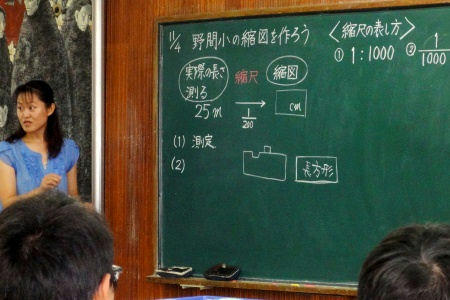 11/4 野間小の縮図を作ろう
〈縮尺の表し方〉
① 1:1000 ② 1/1000
実際の長さ 縮尺 縮図
測る
25m 1/200 cm
(1) 測定
(2)
長方形